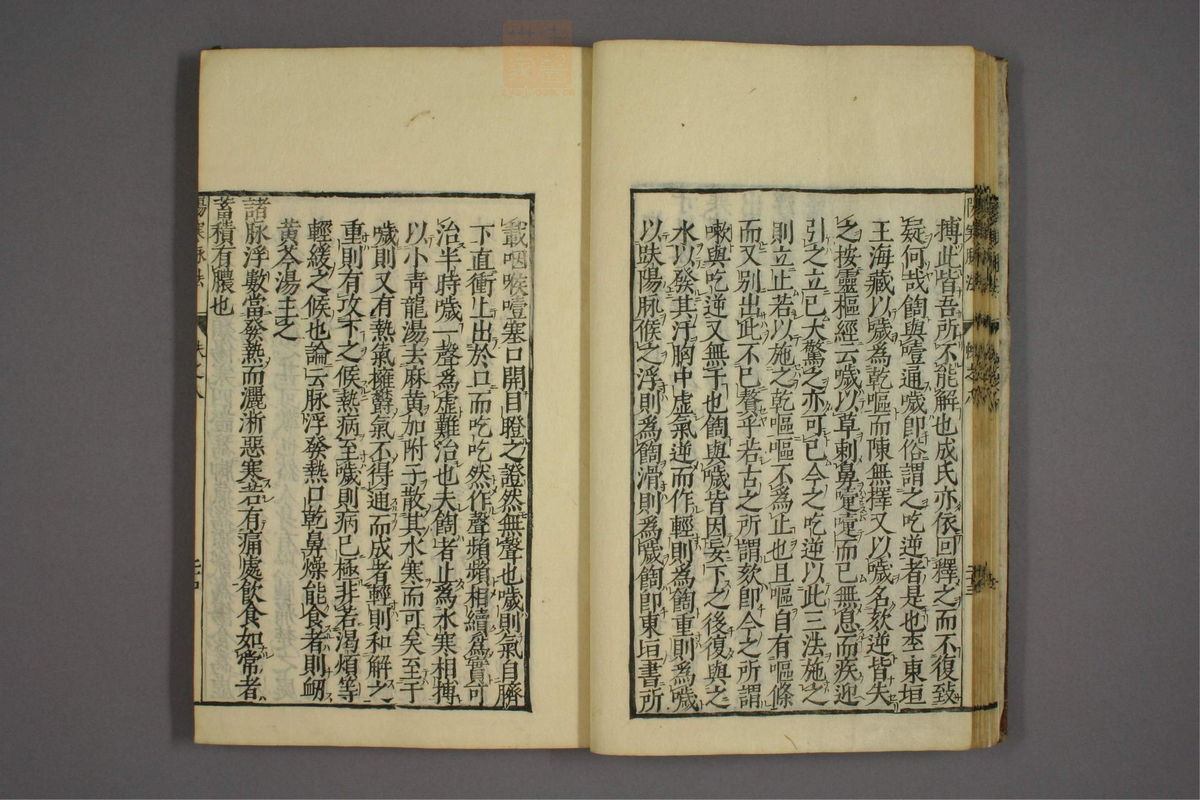 搏此皆吾所不能解也成氏亦依回釋之而不復致
疑何哉餶與噎通噦即俗謂之吃逆者是也李東垣
王海藏以噦為乾嘔而陳無擇又以噦名欬逆皆失
之按靈樞經云噦以草刺鼻嚏嚏而已無息而疾迎
引之立已大驚之亦可已今之吃逆以此三法施之
則立止若以施之乾嘔嘔不為止也且嘔自有嘔條
而又別出此不已贅乎若古之所謂欬即今之所謂
嗽與吃逆又無干也餶與噦皆因妄下之後復與之
水以發其汗胸中虛氣逆而作輕則為餶重則為噦
以趺陽脉候之浮則為餶滑則為噦餶即東垣書所
載咽喉噎塞口開目瞪之證然無聲也噦則氣自臍
下直衝止出於口而吃吃然作聲頻頻相續為實可
治半時噦一聲為虛難治也夫餶者止為水寒相搏
以小青龍湯去麻黄加附子散其水寒而可矣至于
噦則又有熱氣擁鬱氣不得通而成者輕則和解之
重則有攻下之候熱病至噦則病已極非若渴煩等
輕緩之候也論云脉浮發熱口乾鼻燥能食者則衂
黄芩湯主之
諸脉浮數當發熱而灑淅惡寒若有痛處飲食如常者
蓄積有膿也